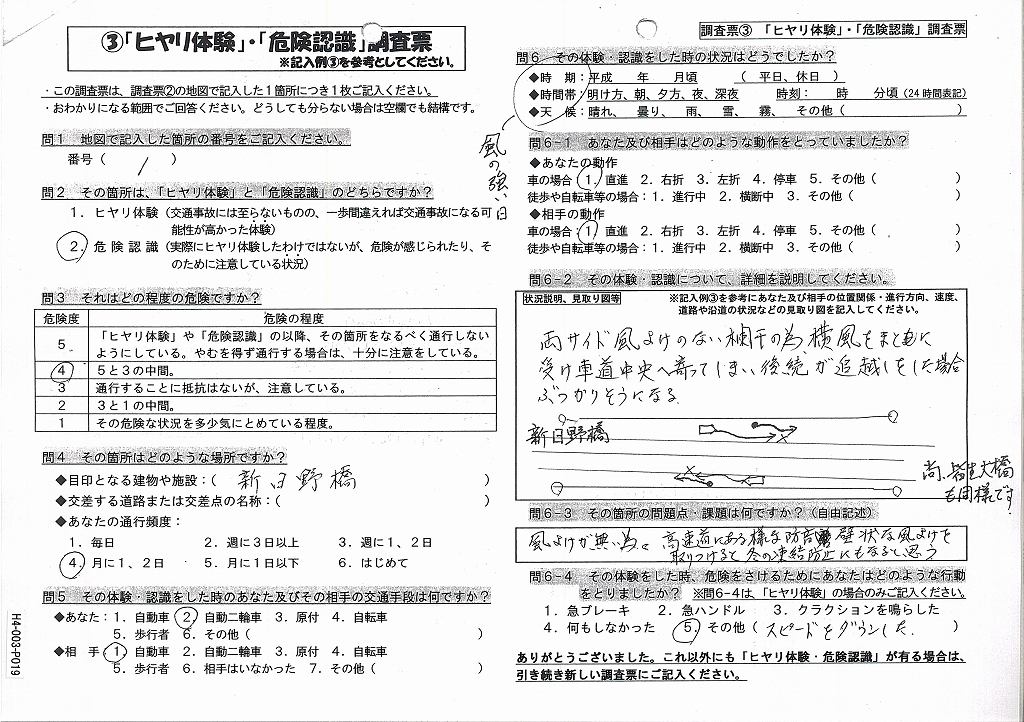 ③「ヒヤリ体験」・「危険認識」調査票
※記入例③を参考としてください。
・この調査票は、調査票②の地図で記入した1箇所につき1枚ご記入ください。
・おわかりになる範囲でご回答ください。どうしても分らない場合は空欄でも結構です。
問1 地図で記入した箇所の番号をご記入ください。
番号（ 1 ）
問2 その箇所は、「ヒヤリ体験」と「危険認識」のどちらですか？
1．ヒヤリ体験（交通事故には至らないものの、一歩間違えれば交通事故になる可
能性が高かった体験）
2．危険認識（実際にヒヤリ体験したわけではないが、危険が感じられたり、そ
のために注意している状況）
問3 それはどの程度の危険ですか？
危険度 危険の程度
5 「ヒヤリ体験」や「危険認識」の以降、その箇所をなるべく通行しない
ようにしている。やむを得ず通行する場合は、十分に注意をしている。
4 5と3の中間。
3 通行することに抵抗はないが、注意している。
2 3と1の中間。
1 その危険な状況を多少気にとめている程度。
問4 その箇所はどのような場所ですか？
◆目印となる建物や施設：（ 新日野橋 ）
◆交差する道路または交差点の名称：（ ）
◆あなたの通行頻度：
1．毎日 2．週に3日以上 3．週に1、2日
4．月に1、2日 5．月に1日以下 6．はじめて
問5 その体験・認識をした時のあなた及びその相手の交通手段は何ですか？
◆あなた：1．自動車 2．自動二輪車 3．原付 4．自転車
5．歩行者 6．その他（ ）
◆相 手：1．自動車 2．自動二輪車 3．原付 4．自転車
5．歩行者 6．相手はいなかった 7．その他（ ）
HA-003-P019
調査票③ 「ヒヤリ体験」・「危険認識」調査票
問6 その体験・認識をした時の状況はどうでしたか？
◆時 期：平成 年 月頃 （ 平日、休日 ）
◆時間帯：明け方、朝、夕方、夜、深夜 時刻： 時 分頃（24時間表記）
◆天 候：晴れ、 曇り、 雨、 雪、 霧、 その他（ ）
風の強い日
問6-1 あなた及び相手はどのような動作をとっていましたか？
◆あなたの動作
車の場合：1．直進 2．右折 3．左折 4．停車 5．その他（ ）
徒歩や自転車等の場合：1．進行中 2．横断中 3．その他（ ）
◆相手の動作
車の場合：1．直進 2．右折 3．左折 4．停車 5．その他（ ）
徒歩や自転車等の場合：1．進行中 2．横断中 3．その他（ ）
問6-2 その体験・認識について、詳細を説明してください。
状況説明、見取り図等 ※記入例③を参考にあなた及び相手の位置関係・進行方向、速度、
道路や沿道の状況などの見取り図を記入してください。
両サイド風よけのない欄干の為横風をまともに
受け車道中央へ寄ってしまい後続が追越しをした場合
ぶつかりそうになる
新日野橋
尚、皆生大橋
も同様です
問6-3 その箇所の問題点・課題は何ですか？（自由記述）
風よけが無い為。高速道にある様な防音壁状な風よけを
取りつけると冬の凍結防止にもなると思う
問6-4 その体験をした時、危険をさけるためにあなたはどのような行動
をとりましたか？ ※問6-4は、「ヒヤリ体験」の場合のみご記入ください。
1．急ブレーキ 2．急ハンドル 3．クラクションを鳴らした
4．何もしなかった 5．その他（ スピードをダウンした． ）
ありがとうございました。これ以外にも「ヒヤリ体験・危険認識」が有る場合は、
引き続き新しい調査票にご記入ください。